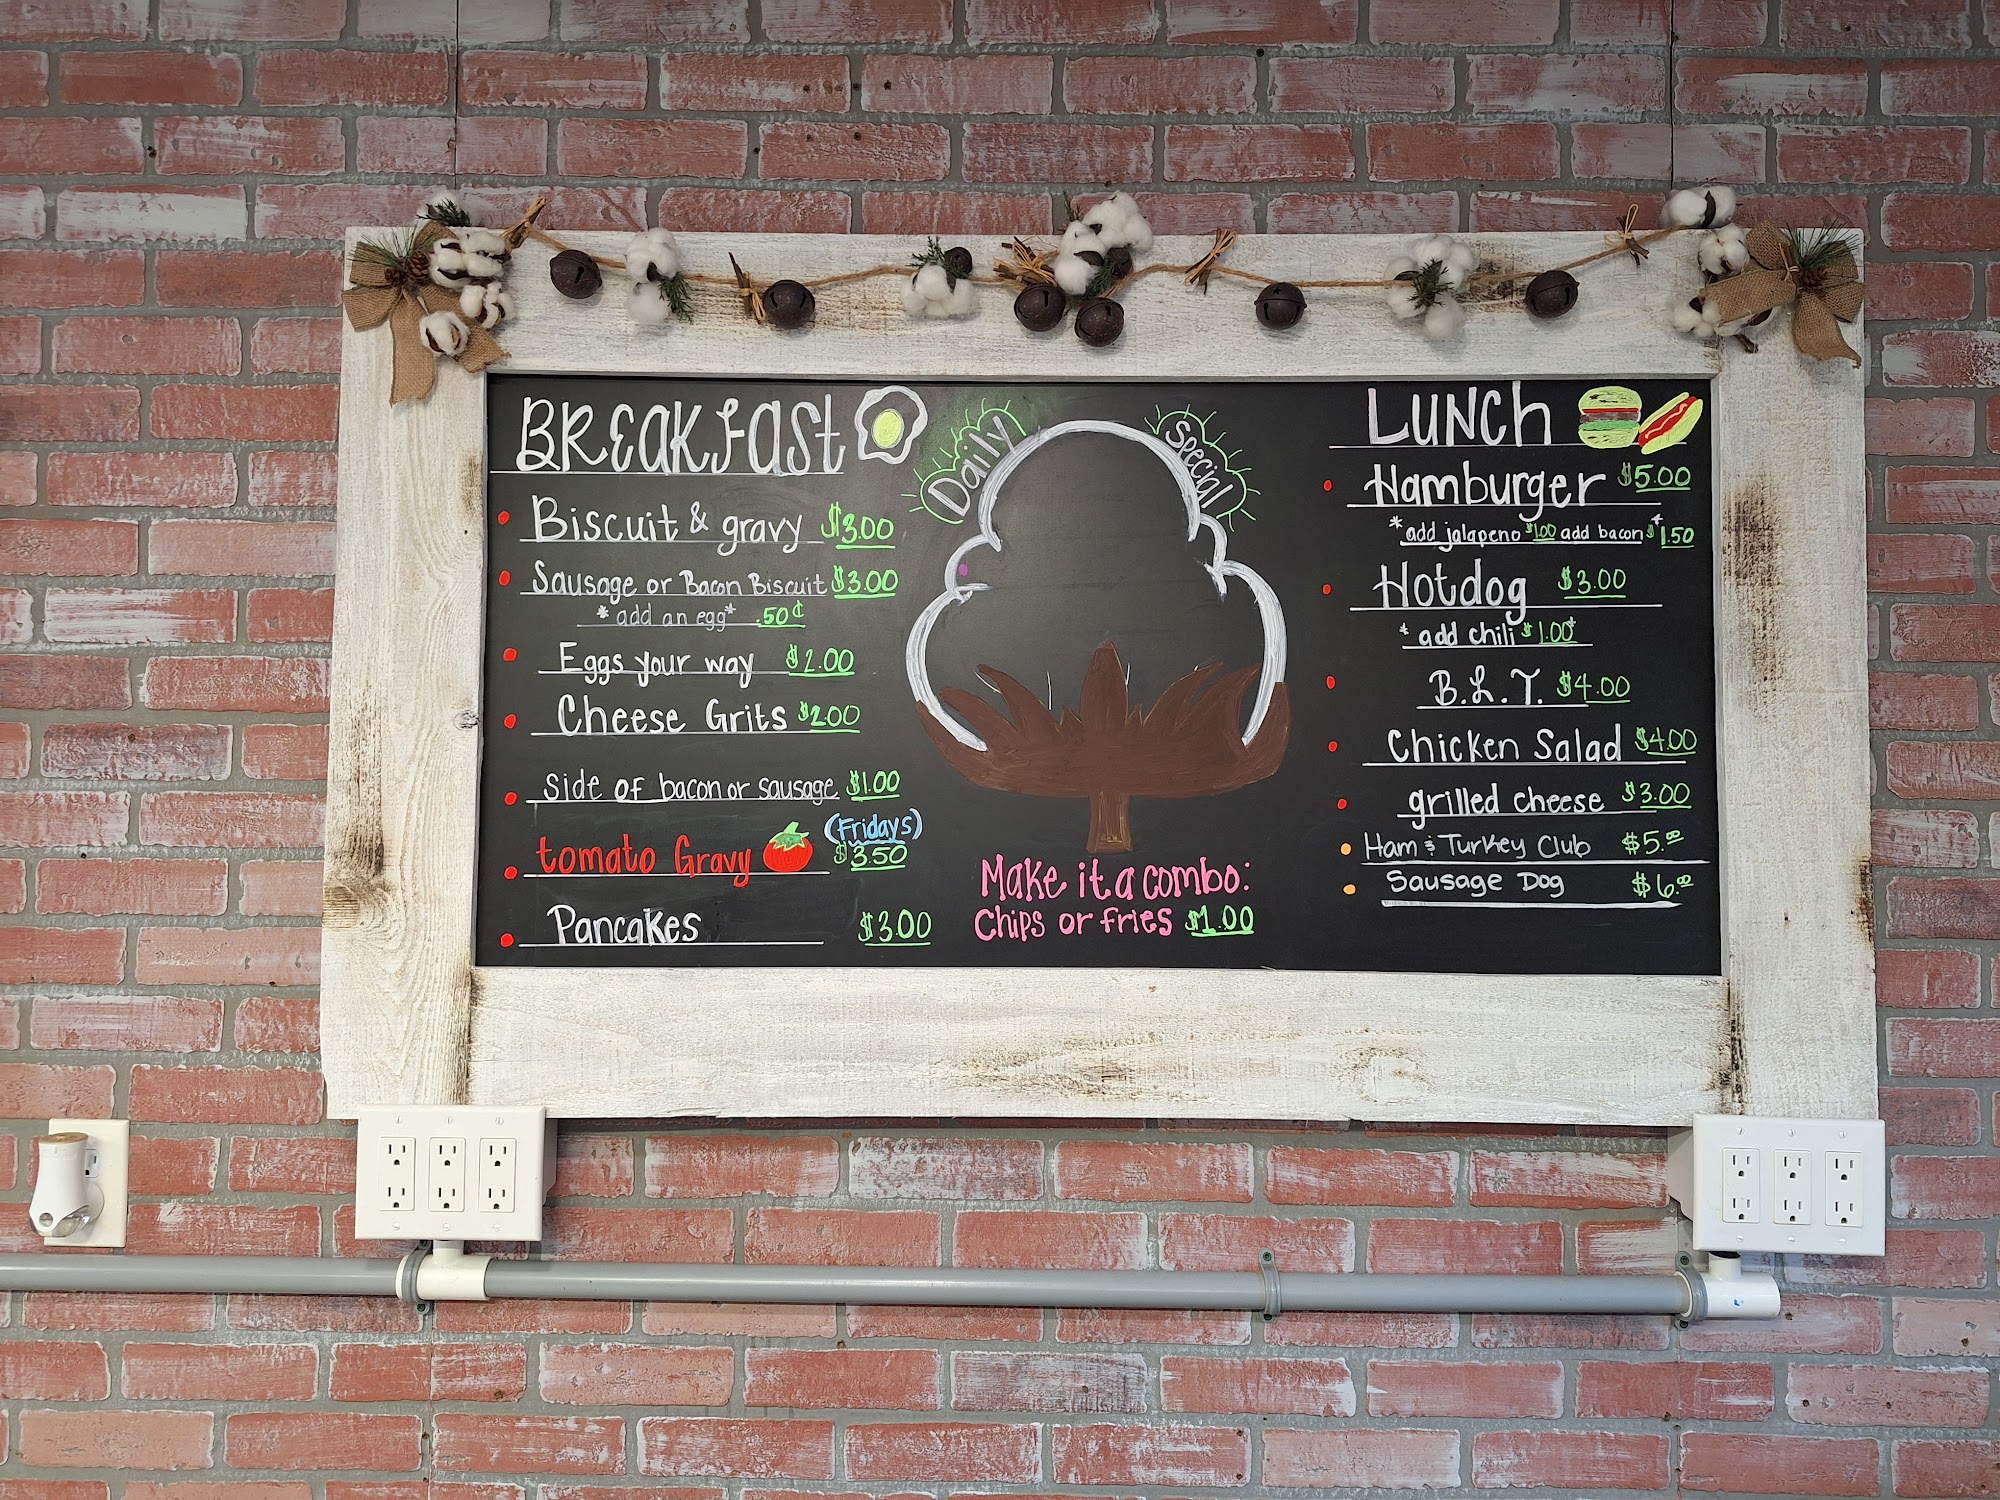 BREAKFAST
Biscuit & gravy $3.00
Sausage or Bacon Biscuit $3.00
*add an egg* .50¢
Eggs your way $2.00
Cheese Grits $2.00
side of bacon or sausage $1.00
(Fridays)
tomato Gravy $3.50
Pancakes $3.00
Daily Special
Make it a combo:
Chips or fries $1.00
LUNCH
Hamburger $5.00
*add jalapeno $1.00 add bacon $1.50*
Hotdog $3.00
*add chili $1.00*
B.L.T. $4.00
Chicken Salad $4.00
grilled cheese $3.00
Ham & Turkey Club $5.00
Sausage Dog $6.00